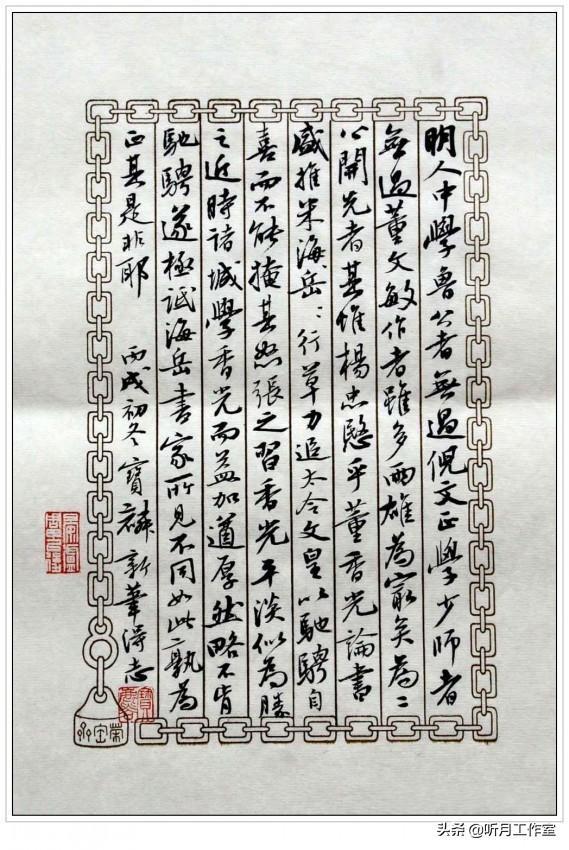 明人中學魯公者無過倪文正學少師者
無過董文敏作者雖多兩雄為冣矣為二
公開先者其惟楊忠愍乎董香光論書
盛推米海岳:行草力追大令文皇以馳騁自
喜而不能掩其怒張之習香光平淡似為勝
之近時諸城學香光而益加遒厚然略不肯
馳騁遂極詆海岳書家所見不同如此孰為
正其是非耶 丙戌初冬 寶麟新華得志
榮宝齋
头条 @听月工作室